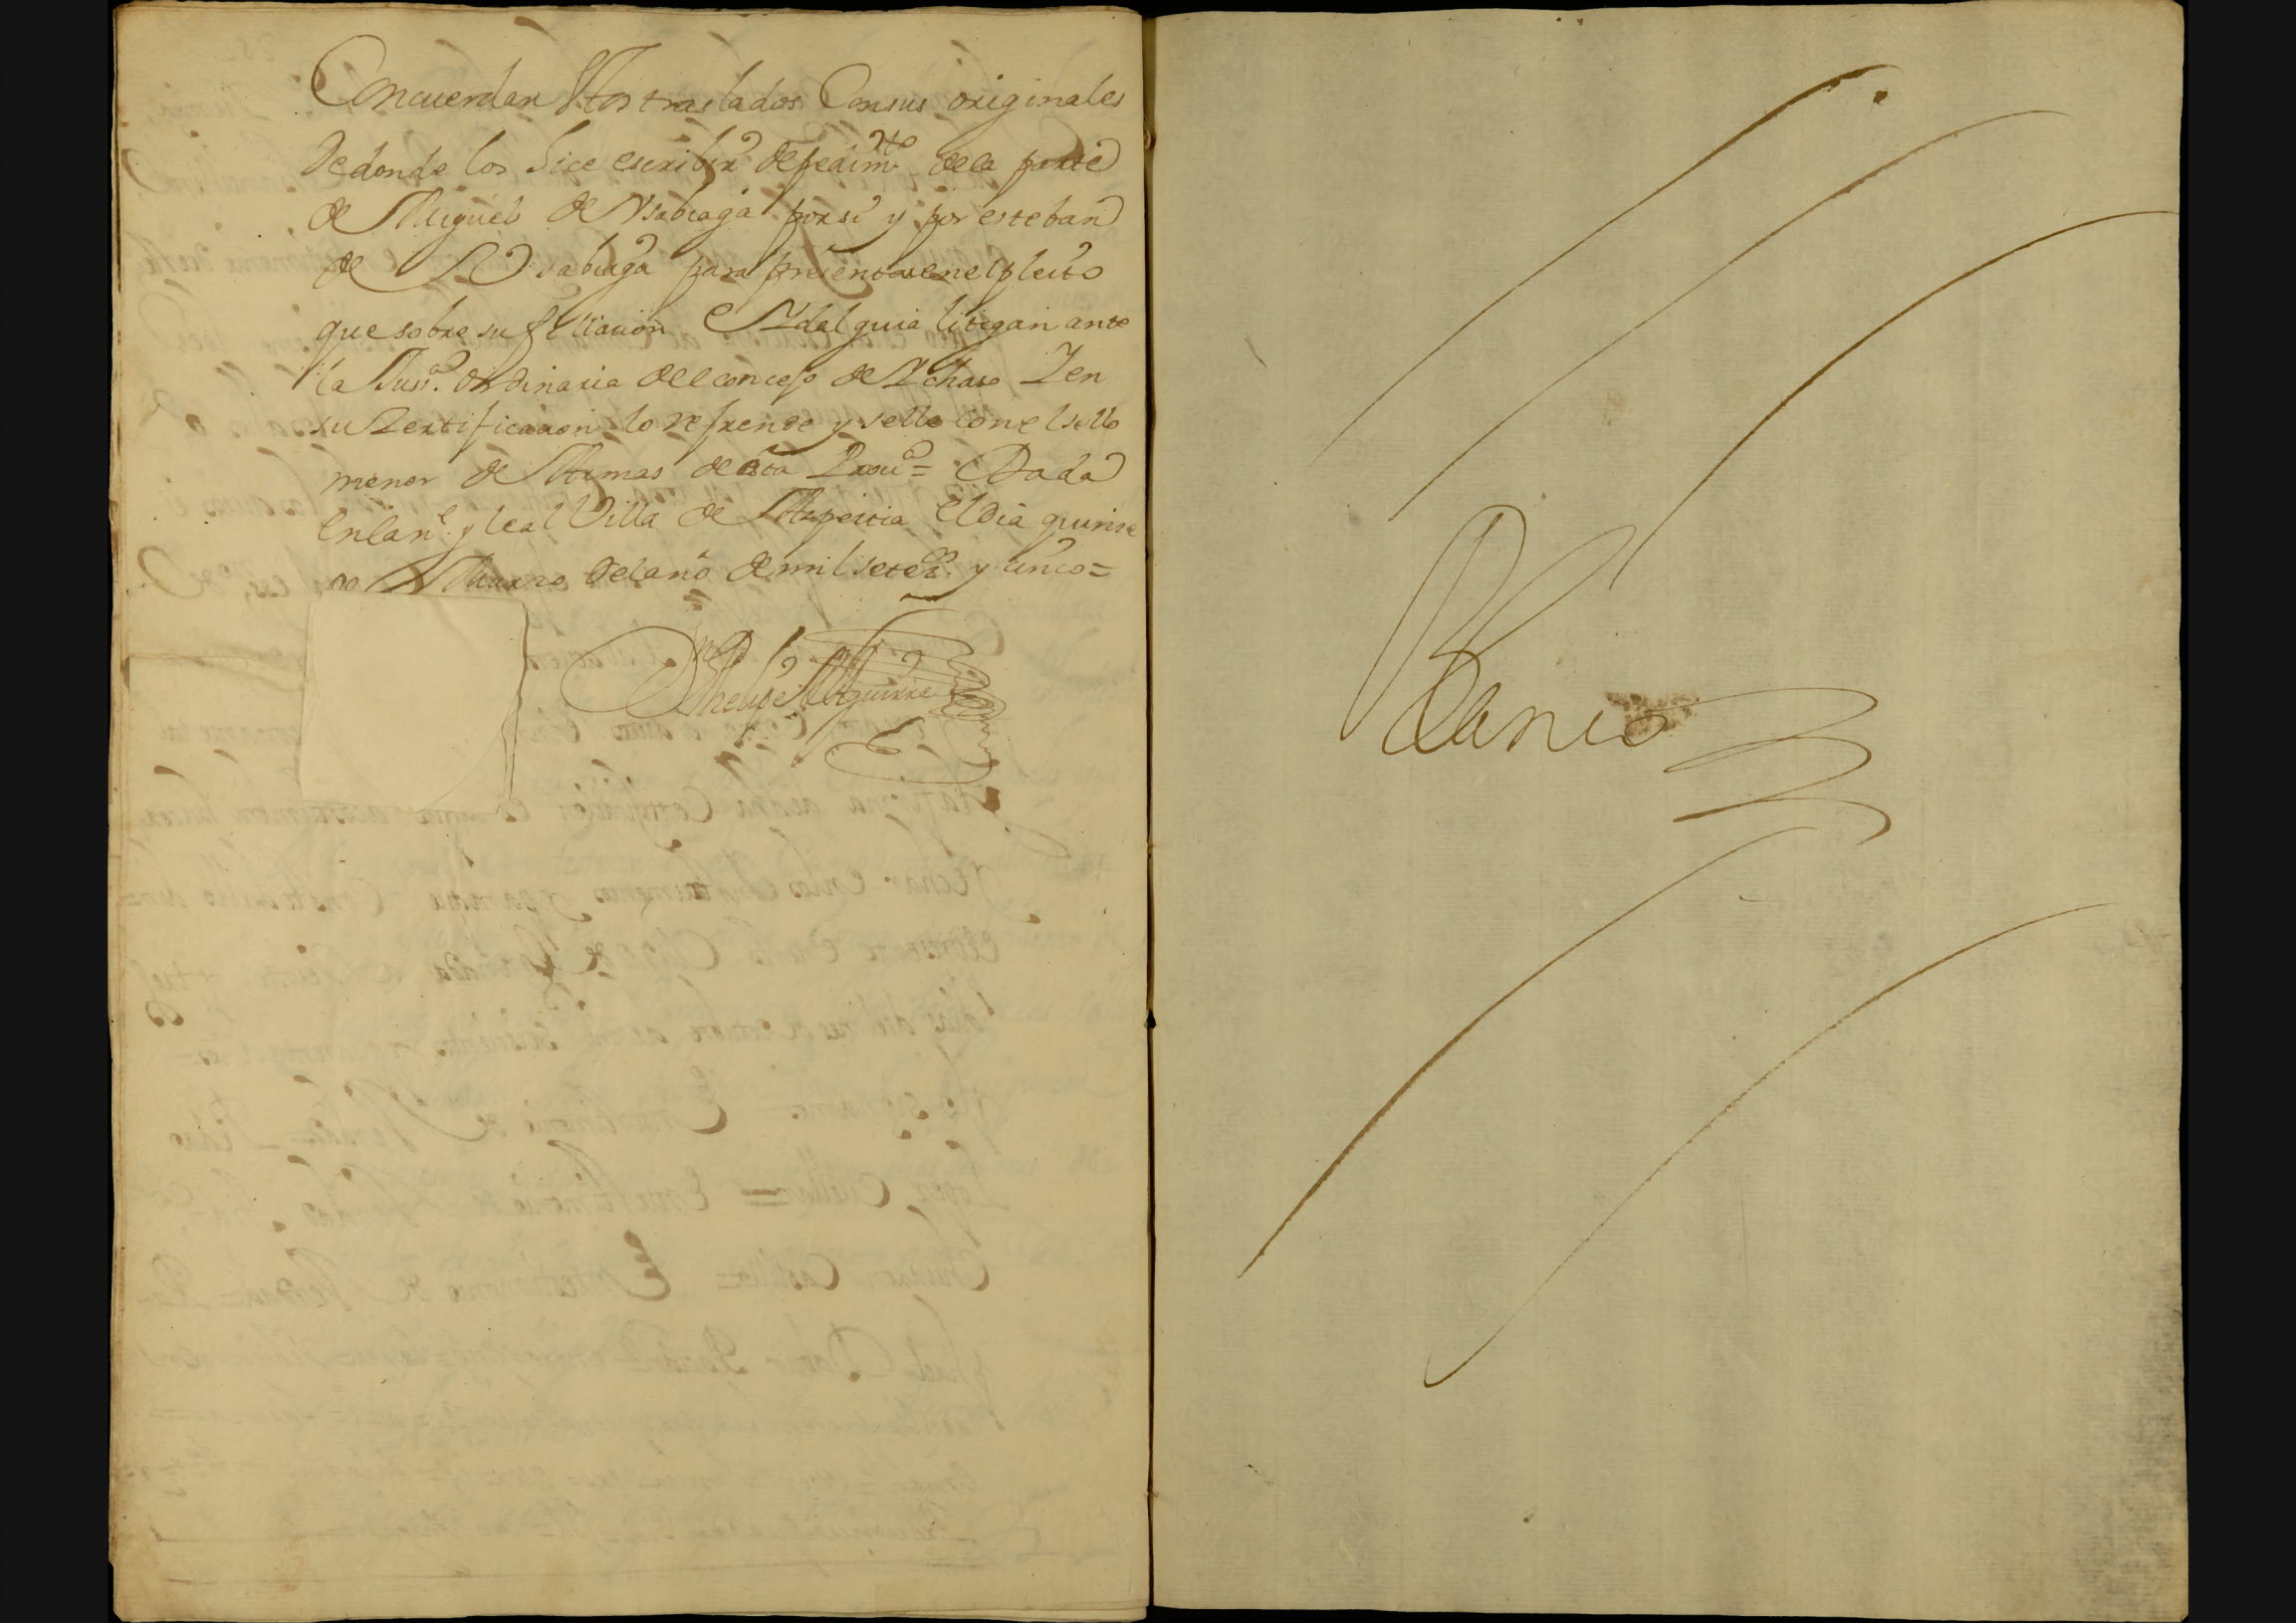 Concuerdan Estos traslados Consus originales
de donde los hice escribir de pedim.to dela parte
de Miguel de Vsabiaga por si y por esteban
de Vsabiaga para presentar enel pleito
que sobre su filiacion e Hidalguia litigan ante
la Jus.a ordinaria del concejo de Ichaso Y en
su Zertificacion lo refrende y selle con el sello
menor de Armas de esta Prou.a = Dada
En la n. y leal Villa de Azpeitia el dia quinze
de Marzo del año de mil setez.os y cinco =
Phelipe de Aguirre
Blanco